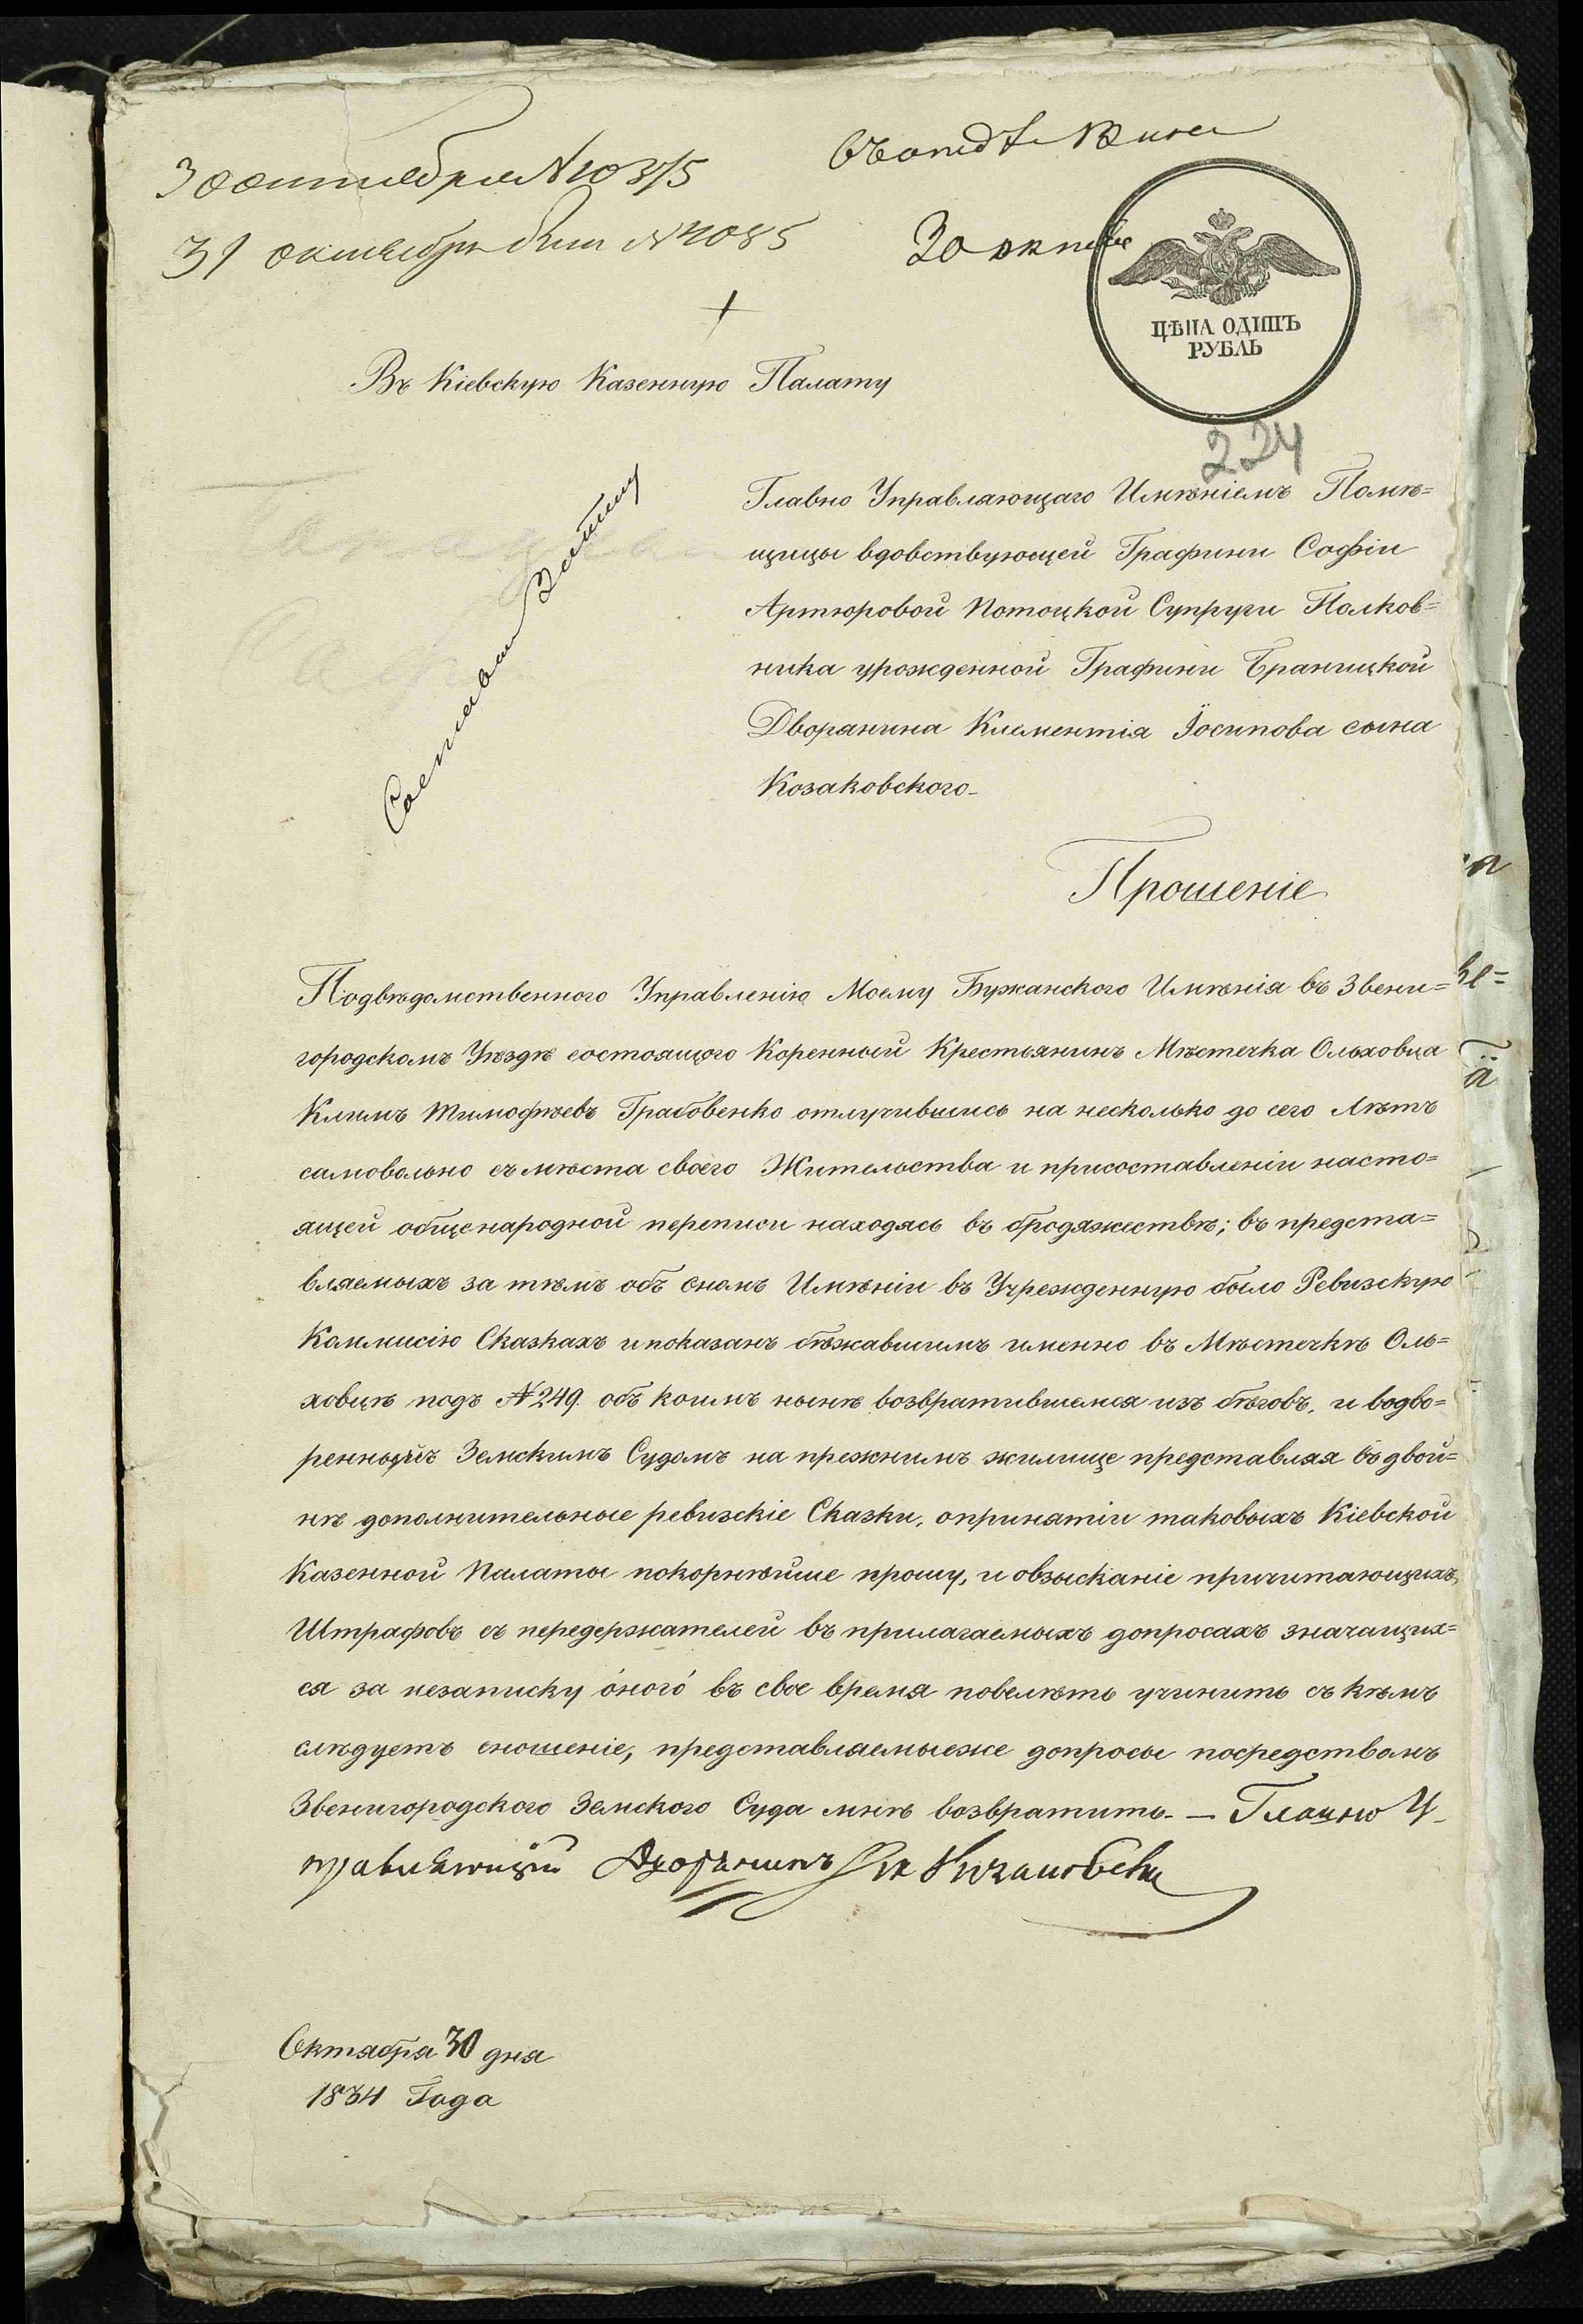 30 октября № 10375
31 октября № 4085
30 октяб
ЦѢНА ОДИНЪ
РУБЛЬ
Въ Кіевскую Казенную Палату
224
Главно Управляющаго Имѣніемъ Помѣ=
щицы вдовствующей Графини Софіи
Артюровой Потоцкой Супруги Полков=
ника урожденной Графини Браницкой
Дворянина Клементія Іосипова сына
Козаковского
Прошеніе
Подвѣдомственного Управленію Моему Бужанского Имѣнія въ Звени=
городскомъ Уѣздѣ состоящого Коренный Крестьянинъ Мѣстечка Ольховца
Климъ Тимофѣевъ Грабовенко отлучившись на несколько до сего Лѣтъ
самовольно съ мѣста своего Жительства и присоставленіи насто=
ящей общенародной переписи находясь въ бродяжествѣ; въ предста=
вляемыхъ за тѣмъ объ ономъ Имѣніи въ Учрежденную было Ревизскую
Коммисію Сказкахъ и показанъ бѣжавшимъ именно въ Мѣстечкѣ Оль=
ховцѣ подъ № 249. объ коимъ нынѣ возвратившемся изъ бѣговъ, и водво=
реннымъ Земскимъ Судомъ на прежнимъ жилище представляя въ двой=
нѣ дополнительные ревизскіе Сказки, опринятіи таковыхъ Кіевской
Казенной Палаты покорнѣйше прошу, и овзысканіе причитающихъ
Штрафовъ съ передержателей въ прилагаемыхъ допросахъ значащих=
ся за незаписку оного въ свое время повелѣть учинить съ кѣмъ
слѣдуетъ сношеніе, представляемыеже допросы посредствомъ
Звенигородского Земского Суда мнѣ возвратить. — Главно У
правляющій Дворянинъ
Октября 30 дня
1834 Года